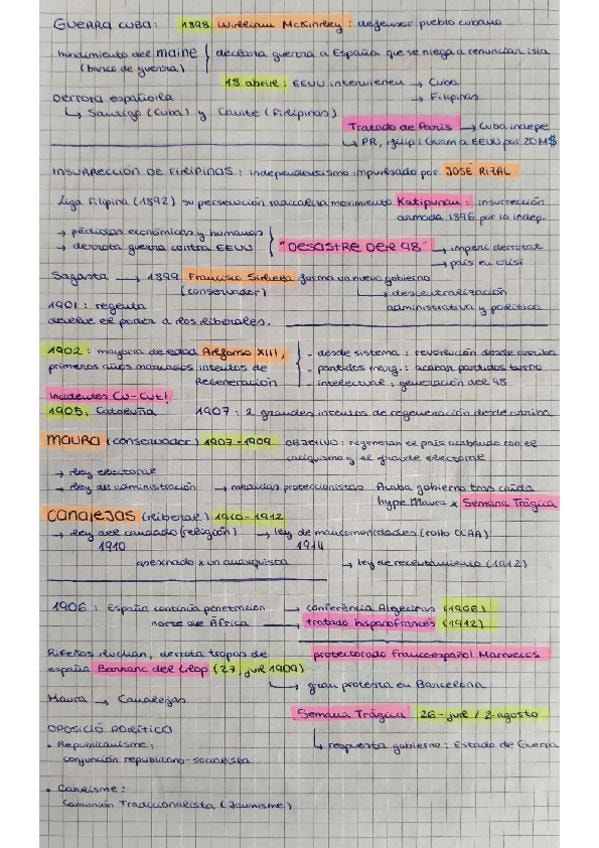 GUERRA CUBA: 1898 William McKinley: defensor pueblo cubano
hundimiento del maine (barco de guerra) { declara guerra a España que se niega a renunciar isla
18 abril: EEUU intervienen → Cuba
→ Filipinas
Derrota española
↳ Santiago (Cuba) y Cavite (Filipinas)
Tratado de París → Cuba indepe
↳ PR, filipi i Guam a EEUU por 20M$
INSURRECCIÓN DE FILIPINAS: independentismo impulsado por JOSÉ RIZAL
Liga Filipina (1892) su persecución radicaliza movimiento Katipunan: insurrección
armada 1896 por la indep.
→ pérdidas económicas y humanas
→ derrota guerra contra EEUU
"DESASTRE DEL 98" → imperi derrotat
→ país en crisi
Sagasta → 1899 Francisco Silvela forma un nuevo gobierno
(conservador) ↳ descentralización
administrativa y política
1901: regenta
devuelve el poder a los liberales.
1902: mayoría de edad Alfonso XIII,
primeros años marcados intentos de
Regeneración
- desde sistema: revolución desde arriba
- partidos marg.: acaban partidos turno
- intelectual: generación del 98
Incidentes Cu-Cut!
1905, Cataluña 1907: 2 grandes intentos de regeneración desde arriba
MAURA (conservador) 1907-1909 OBJETIVO: regenerar el país acabando con el
caciquismo y el fraude electoral
→ ley electoral
→ ley de administración → medidas proteccionistas Acaba gobierno tras caída
hype Maura x Semana Trágica
Canalejas (liberal) 1910-1912
→ ley del candado (religión) → ley de mancomunidades (rollo CCAA)
1910 1914
asesinado x un anarquista → ley de reclutamiento (1912)
1906: España continúa penetración → conferència Algeciras (1906)
norte de África → tratado hispanofrancés (1912)
Rifeños luchan, derrota tropas de protectorado francoespañol Marruecos
españa Barranc del Llop (27, jul 1909)
↳ gran protesta en Barcelona
Maura → Canalejas
Semana Trágica 26-jul / 2-agosto
↳ respuesta gobierno: Estado de Guerra
OPOSICIÓ POLÍTICA
• Republicanisme:
conjunción republicano-socialista
• Carlisme:
Comunión Tradicionalista (Jaumisme)